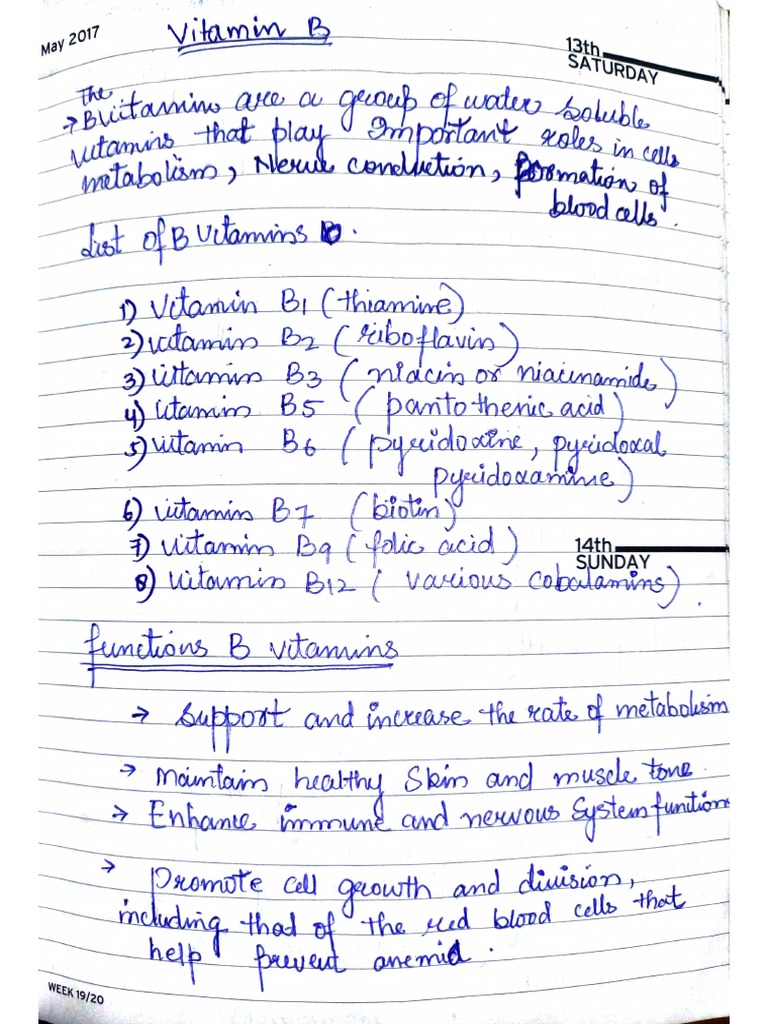 May 2017
Vitamin B
13th
SATURDAY
The
→ B Vitamins are a group of water soluble
vitamins that play Important roles in cells
metabolism, Nerve conduction, formation of
blood cells.
List of B vitamins.
1) Vitamin B1 (thiamine)
2) vitamins B2 (riboflavin)
3) vitamins B3 (niacin or niacinamide)
4) vitamins B5 (pantothenic acid)
5) vitamin B6 (pyridoxine, pyridoxal
pyridoxamine)
6) vitamins B7 (biotin)
7) vitamin B9 (folic acid)
14th
SUNDAY
8) vitamin B12 (various cobalamins).
functions B vitamins
→ support and increase the rate of metabolism
→ maintain healthy skin and muscle tone.
→ Enhance immune and nervous system function
→ Promote cell growth and division,
including that of the red blood cells that
help prevent anemia.
WEEK 19/20